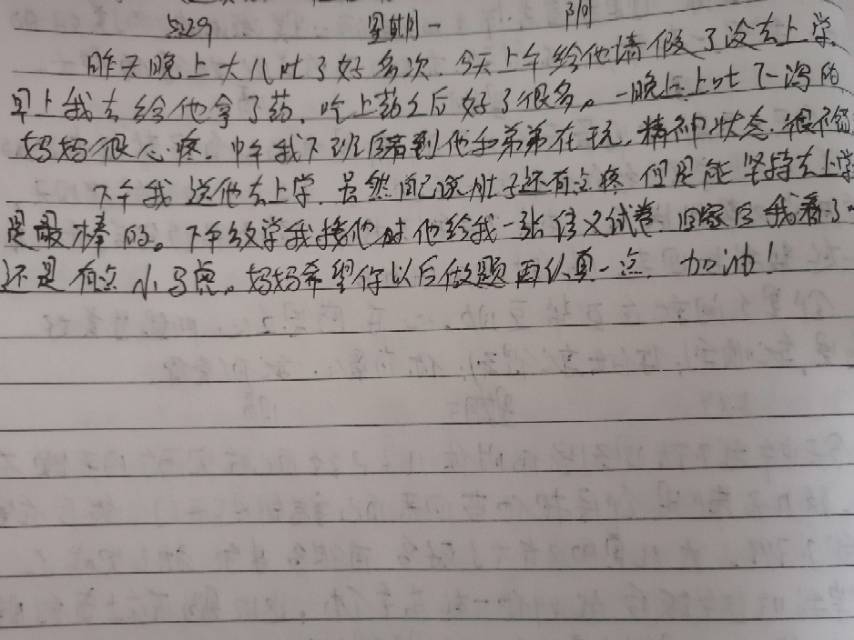 5.29 星期一 阴
昨天晚上大儿吐了好多次.今天上午给他请假了没去上学.
早上我去给他拿了药.吃上药之后好了很多。一晚上上吐下泻的
妈妈很心疼.中午我下班后看到他和弟弟在玩,精神状态很不错
下午我送他去上学.虽然自己说肚子还有点疼但是能坚持去上学
是最棒的。下午放学我接他时他给我一张语文试卷.回家后我看了一
还是有点小马虎。妈妈希望你以后做题再认真一点.加油!